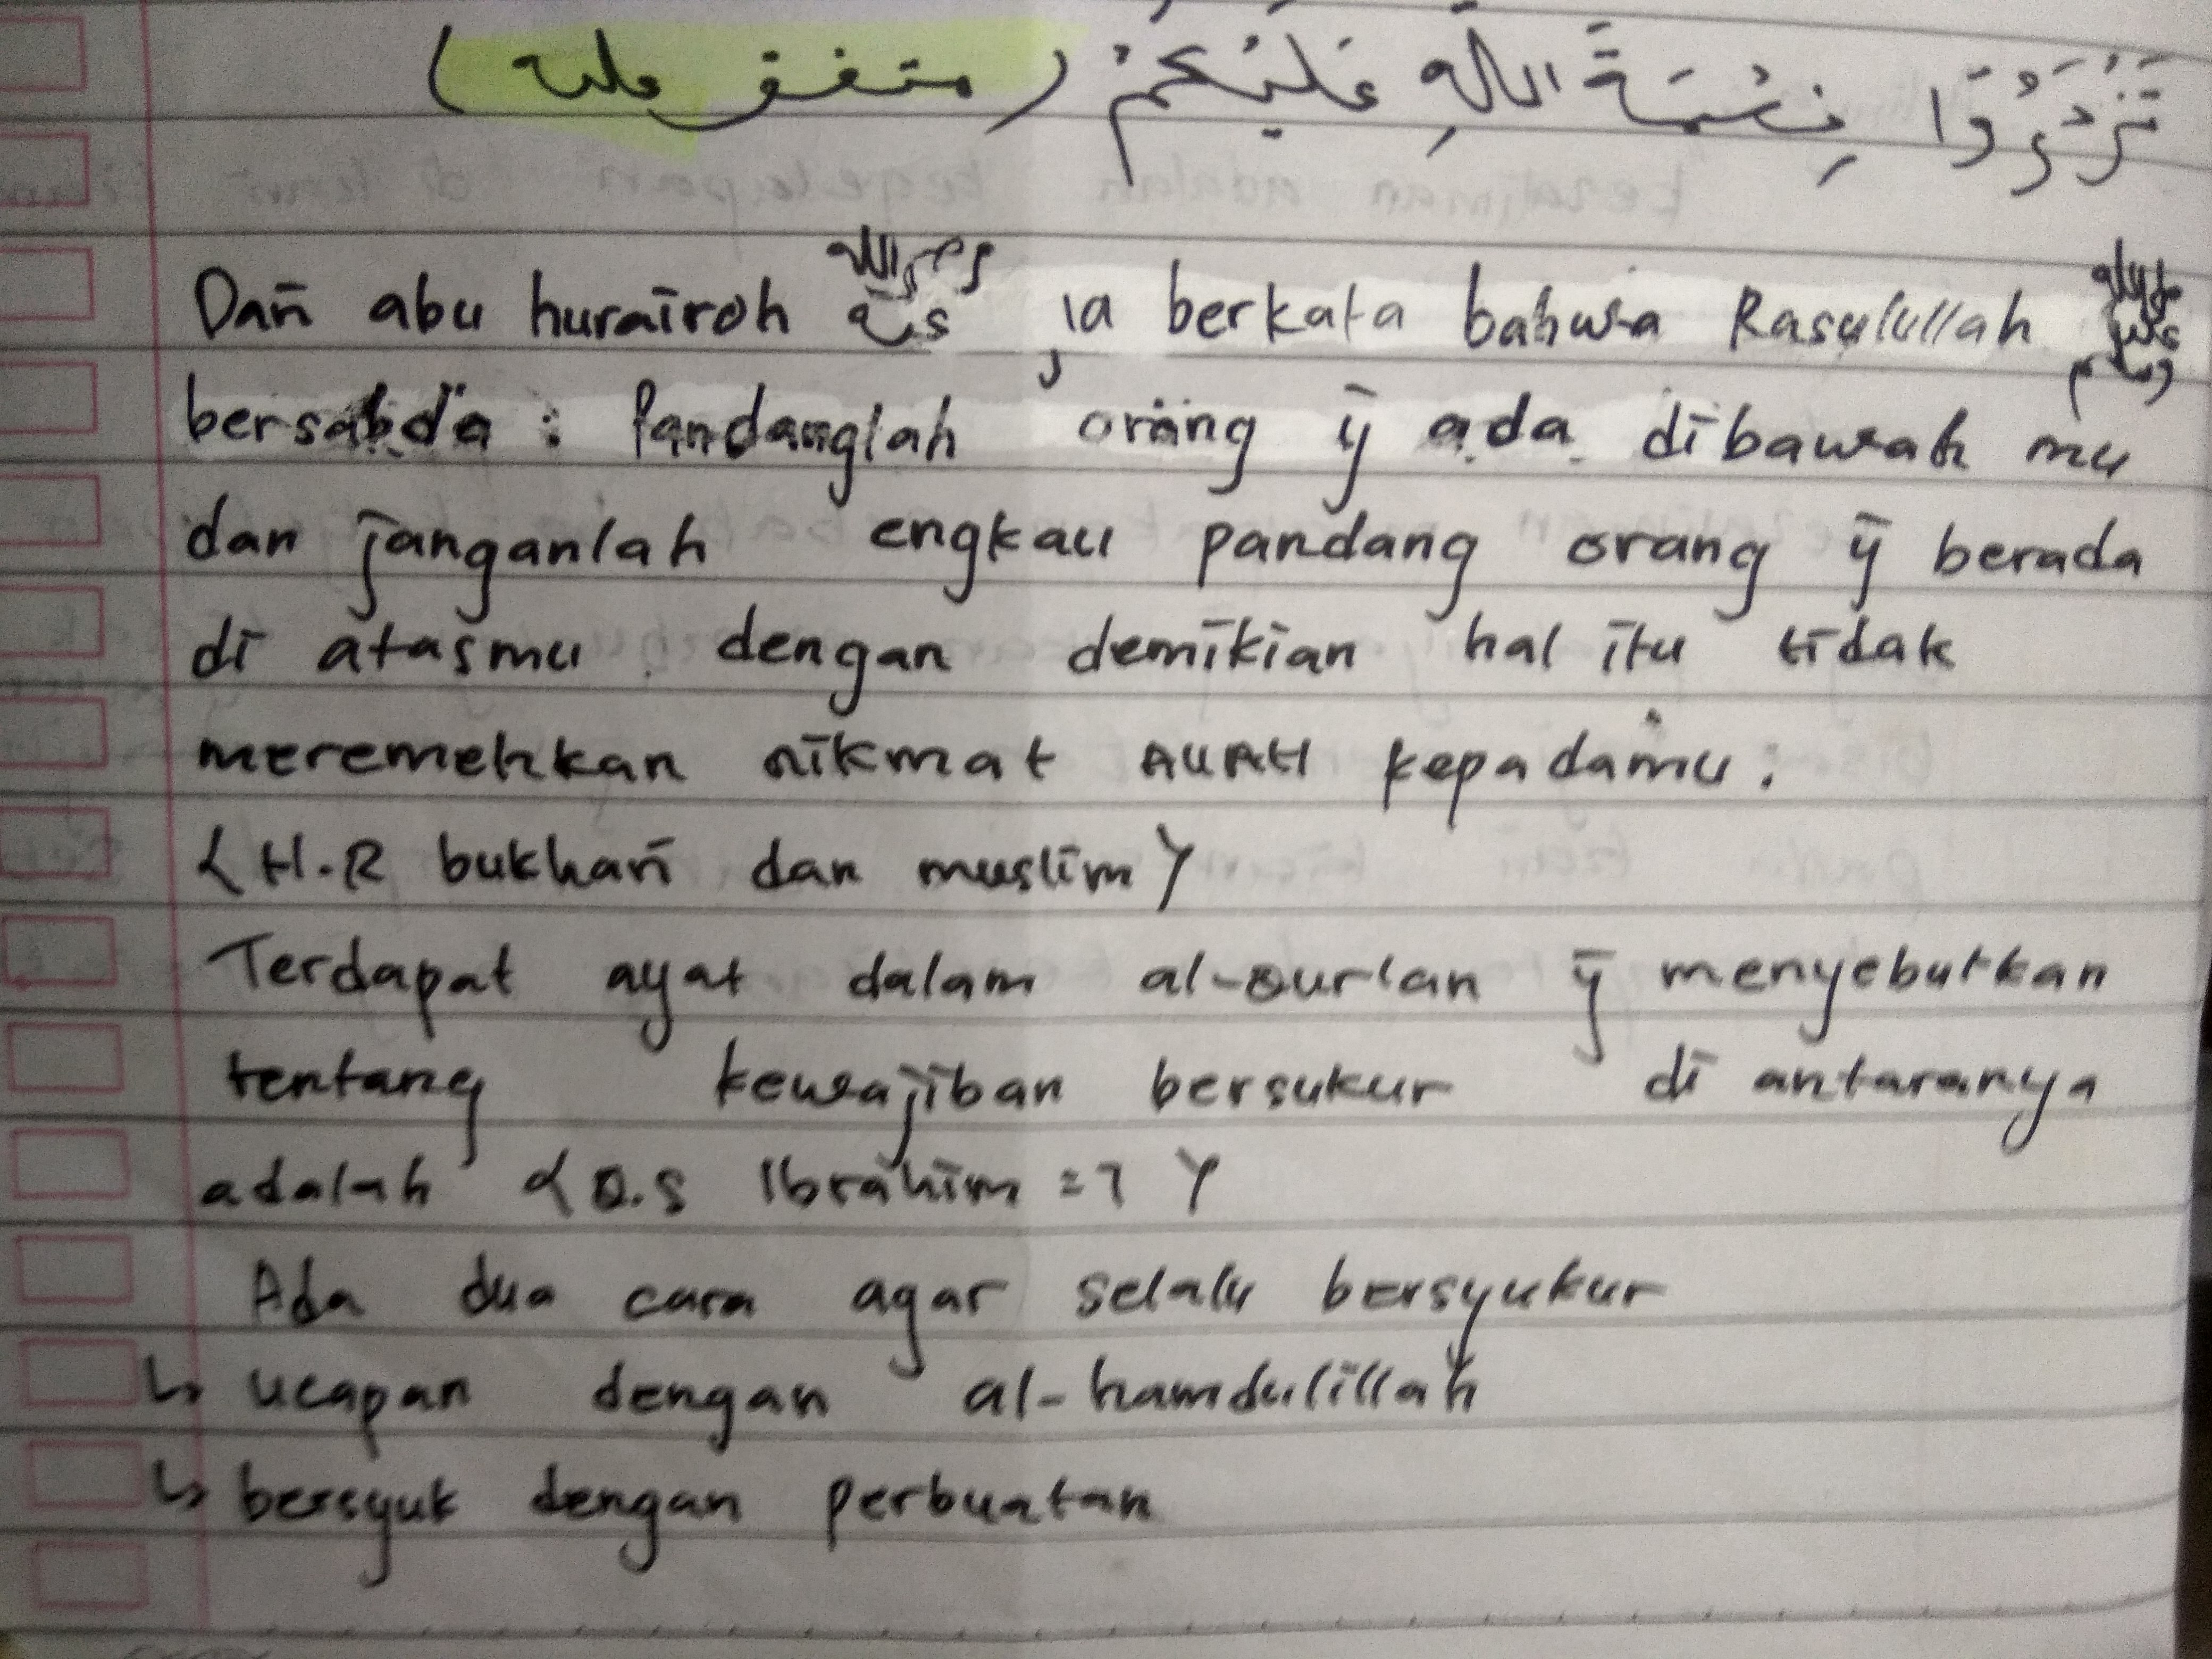 تَزْدَرُوْا نِعْمَةَ اللهِ عَلَيْكُمْ (متفق عليه)
Dari abu hurairoh رضي الله عنه ia berkata bahwa Rasulullah صلى الله عليه وسلم
bersabda : Pandanglah orang yg ada dibawah mu
dan janganlah engkau pandang orang yg berada
di atasmu. dengan demikian hal itu tidak
meremehkan nikmat ALLAH kepadamu :
( H.R bukhari dan muslim )
Terdapat ayat dalam al-Qur'an yg menyebutkan
tentang kewajiban bersukur di antaranya
adalah ( Q.S Ibrahim = 7 )
Ada dua cara agar selalu bersyukur
↳ ucapan dengan al-hamdulillah
↳ bersyuk dengan perbuatan